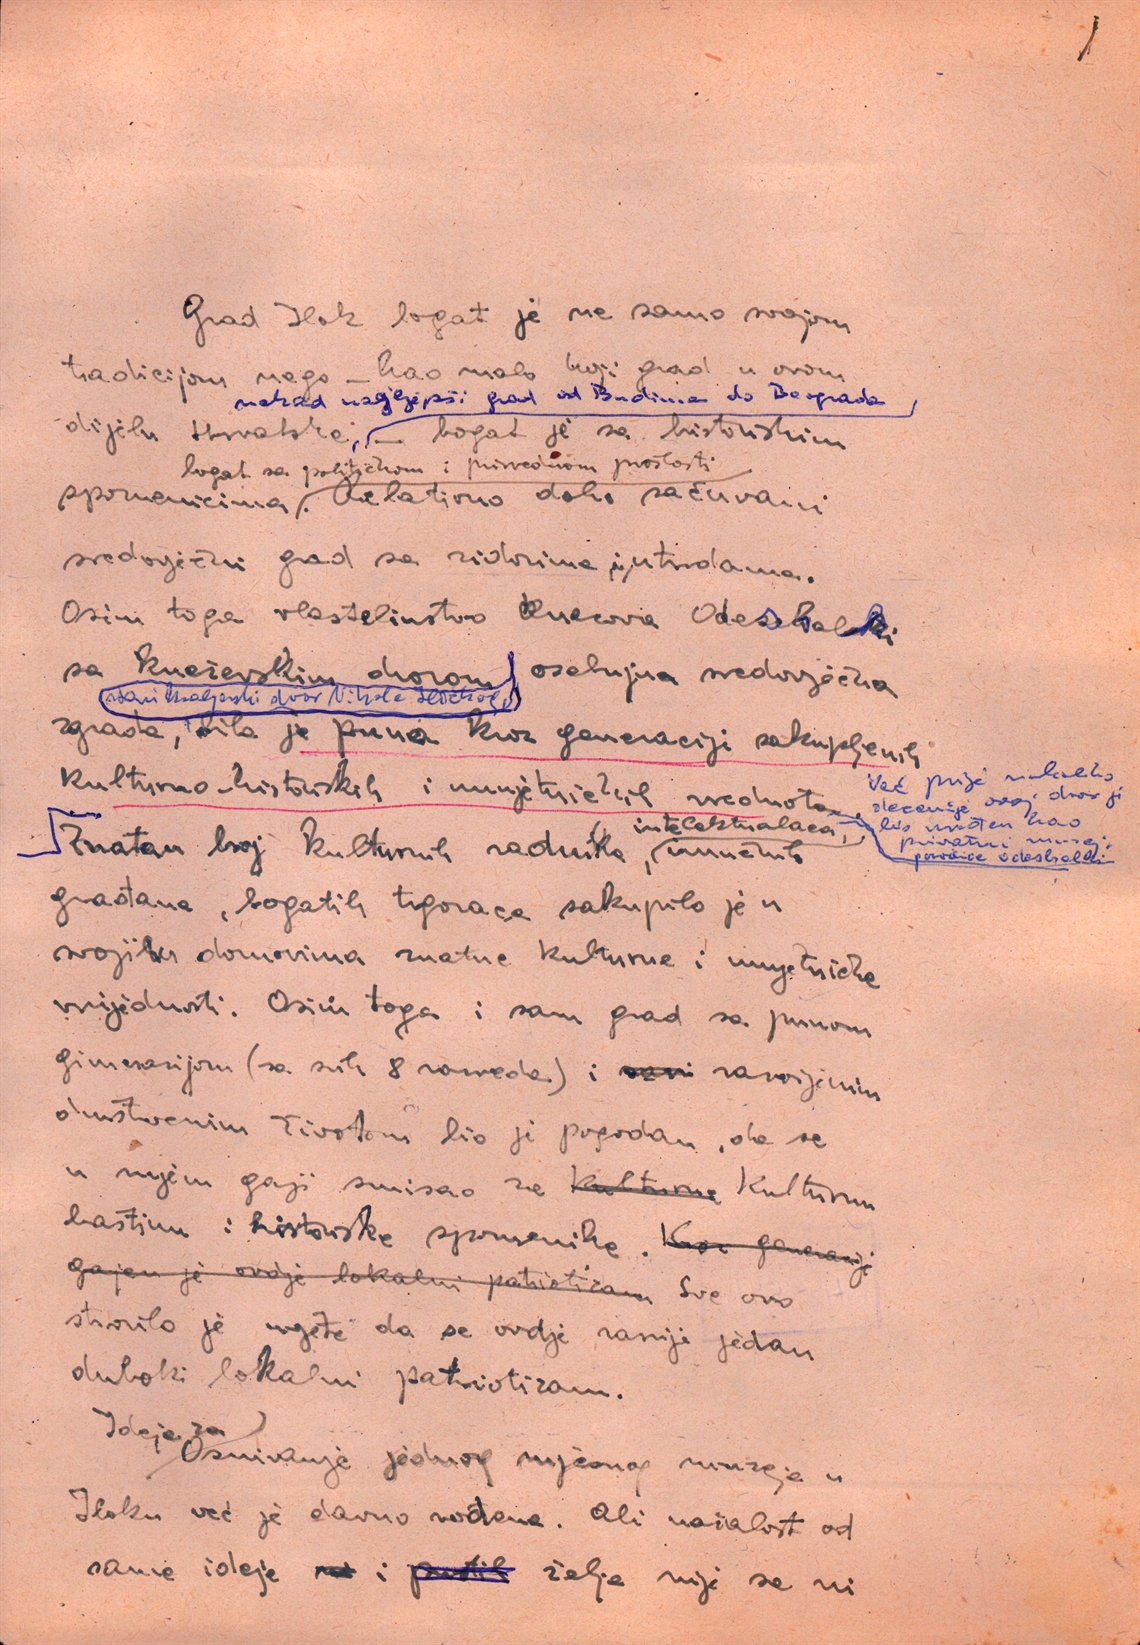 1
Grad Ilok bogat je ne samo svojom
tradicijom nego – kao malo koji grad u ovom
nekad najljepši grad od Budima do Beograda
dijelu Hrvatske, – bogat je sa historiskim
bogat sa političkom i privrednom prošlosti
spomenicima. Relativno dobro sačuvani
sredovječni grad sa zidovima i utvrdama.
Osim toga vlastelinstvo knezova Odeskalki
sa kneževskim dvorom osebujna sredovječna
stari kraljevski dvor Nikole Iločkog
zgrada, bila je puna kroz generaciji sakupljenih
kulturno-historiskih i umjetničkih vrednota
Već prije nekoliko
decenije ovaj dvor je
bio uređen kao
privatni muzej
porodice Odeskalki
intelektualaca,
Znatan broj kulturnih radnika, imućnih
građana, bogatih trgovaca sakupilo je u
svojim domovima znatne kulturne i umjetničke
vrijednosti. Osim toga i sam grad sa punom
gimnazijom (sa svih 8 razreda) i razvijenim
društvenim životom bio je pogodan, da se
u njem gaji smisao za kulturne kulturnu
baštinu i historiske spomenike. Kroz generacije
gajen je ovdje lokalni patriotizam Sve ovo
stvorilo je uvjete da se ovdje razvije jedan
duboki lokalni patriotizam.
Ideja za
Osnivanje jednog mjesnog muzeja u
Iloku već je davno rođena. Ali nažalost od
same ideje i pustih želja nije se ni